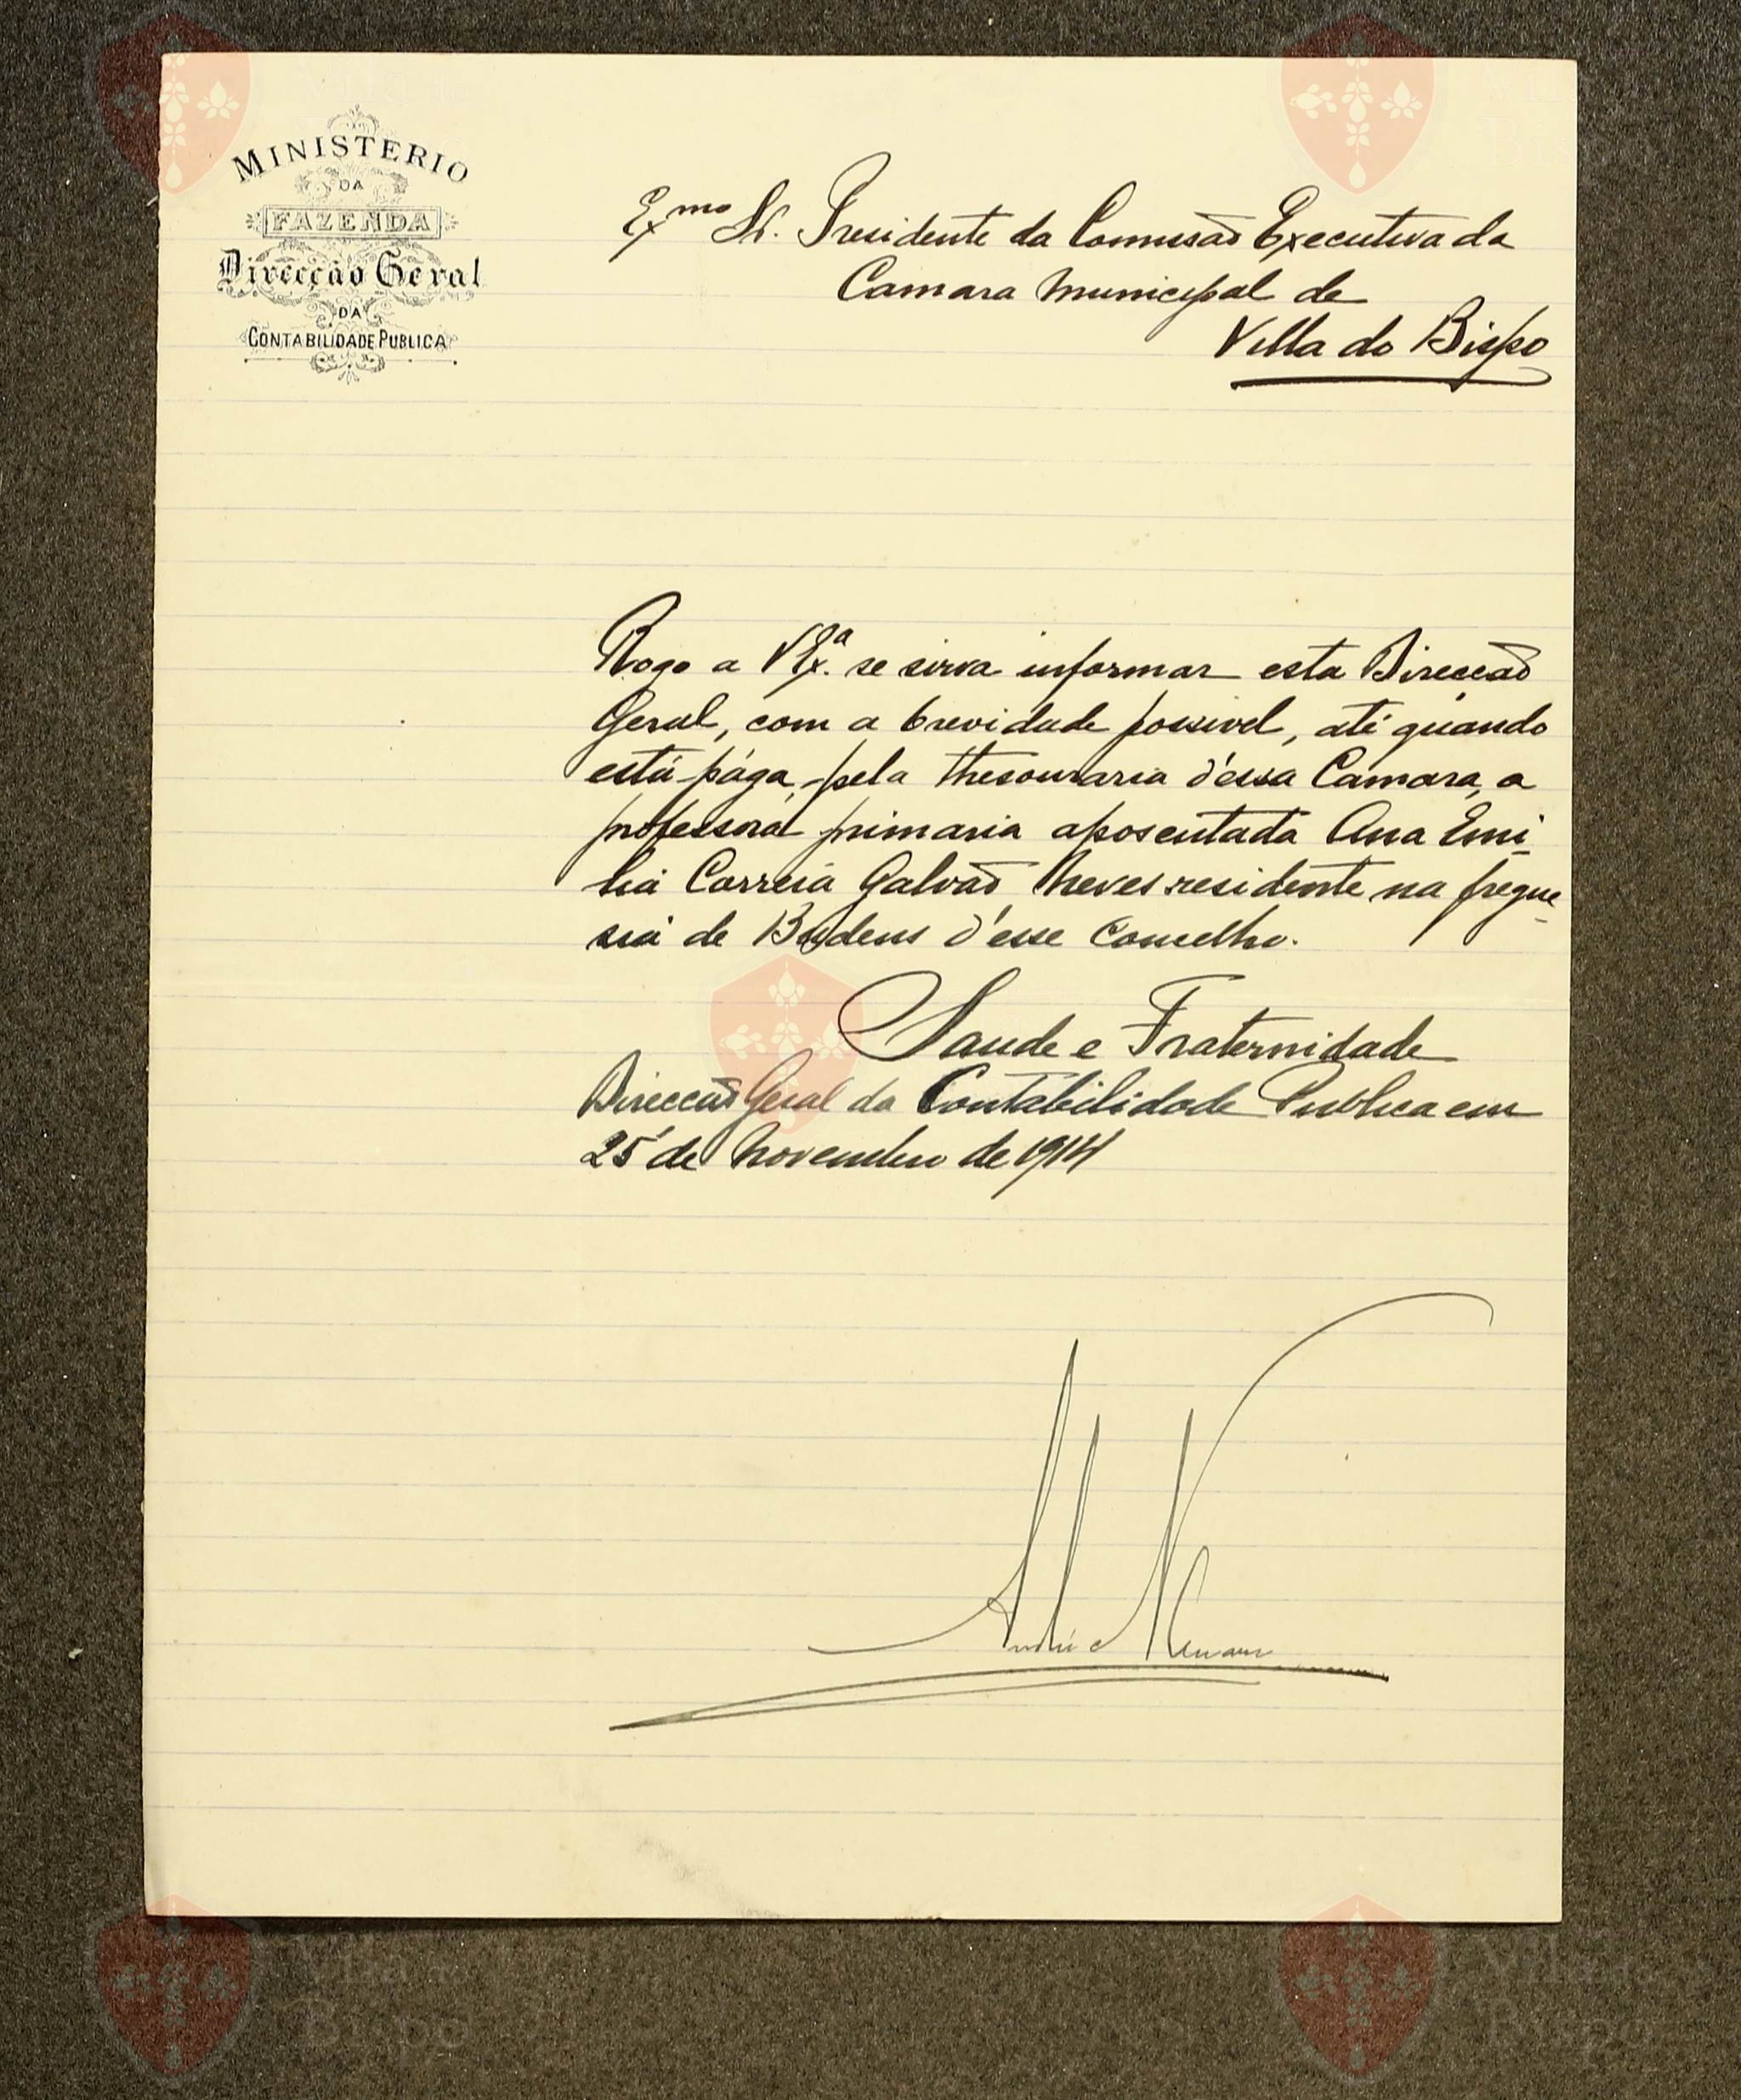 MINISTERIO
DA
FAZENDA
Direcção Geral
DA
CONTABILIDADE PUBLICA
Exmo Sr. Presidente da Comissão Executiva da
Camara Municipal de
Villa do Bispo
Rogo a V Exa. se sirva informar esta Direcção
Geral, com a brevidade possivel, até quando
está pága, pela thesouraria d'essa Camara, a
professora primaria aposentada Ana Emi-
lia Correia Galvão Neves residente na fregue-
sia de Budens d'esse concelho.
Saude e Fraternidade
Direcção Geral da Contabilidade Publica em
25 de Novembro de 1914
André
Vila do
Bispo
Vila do
Bispo